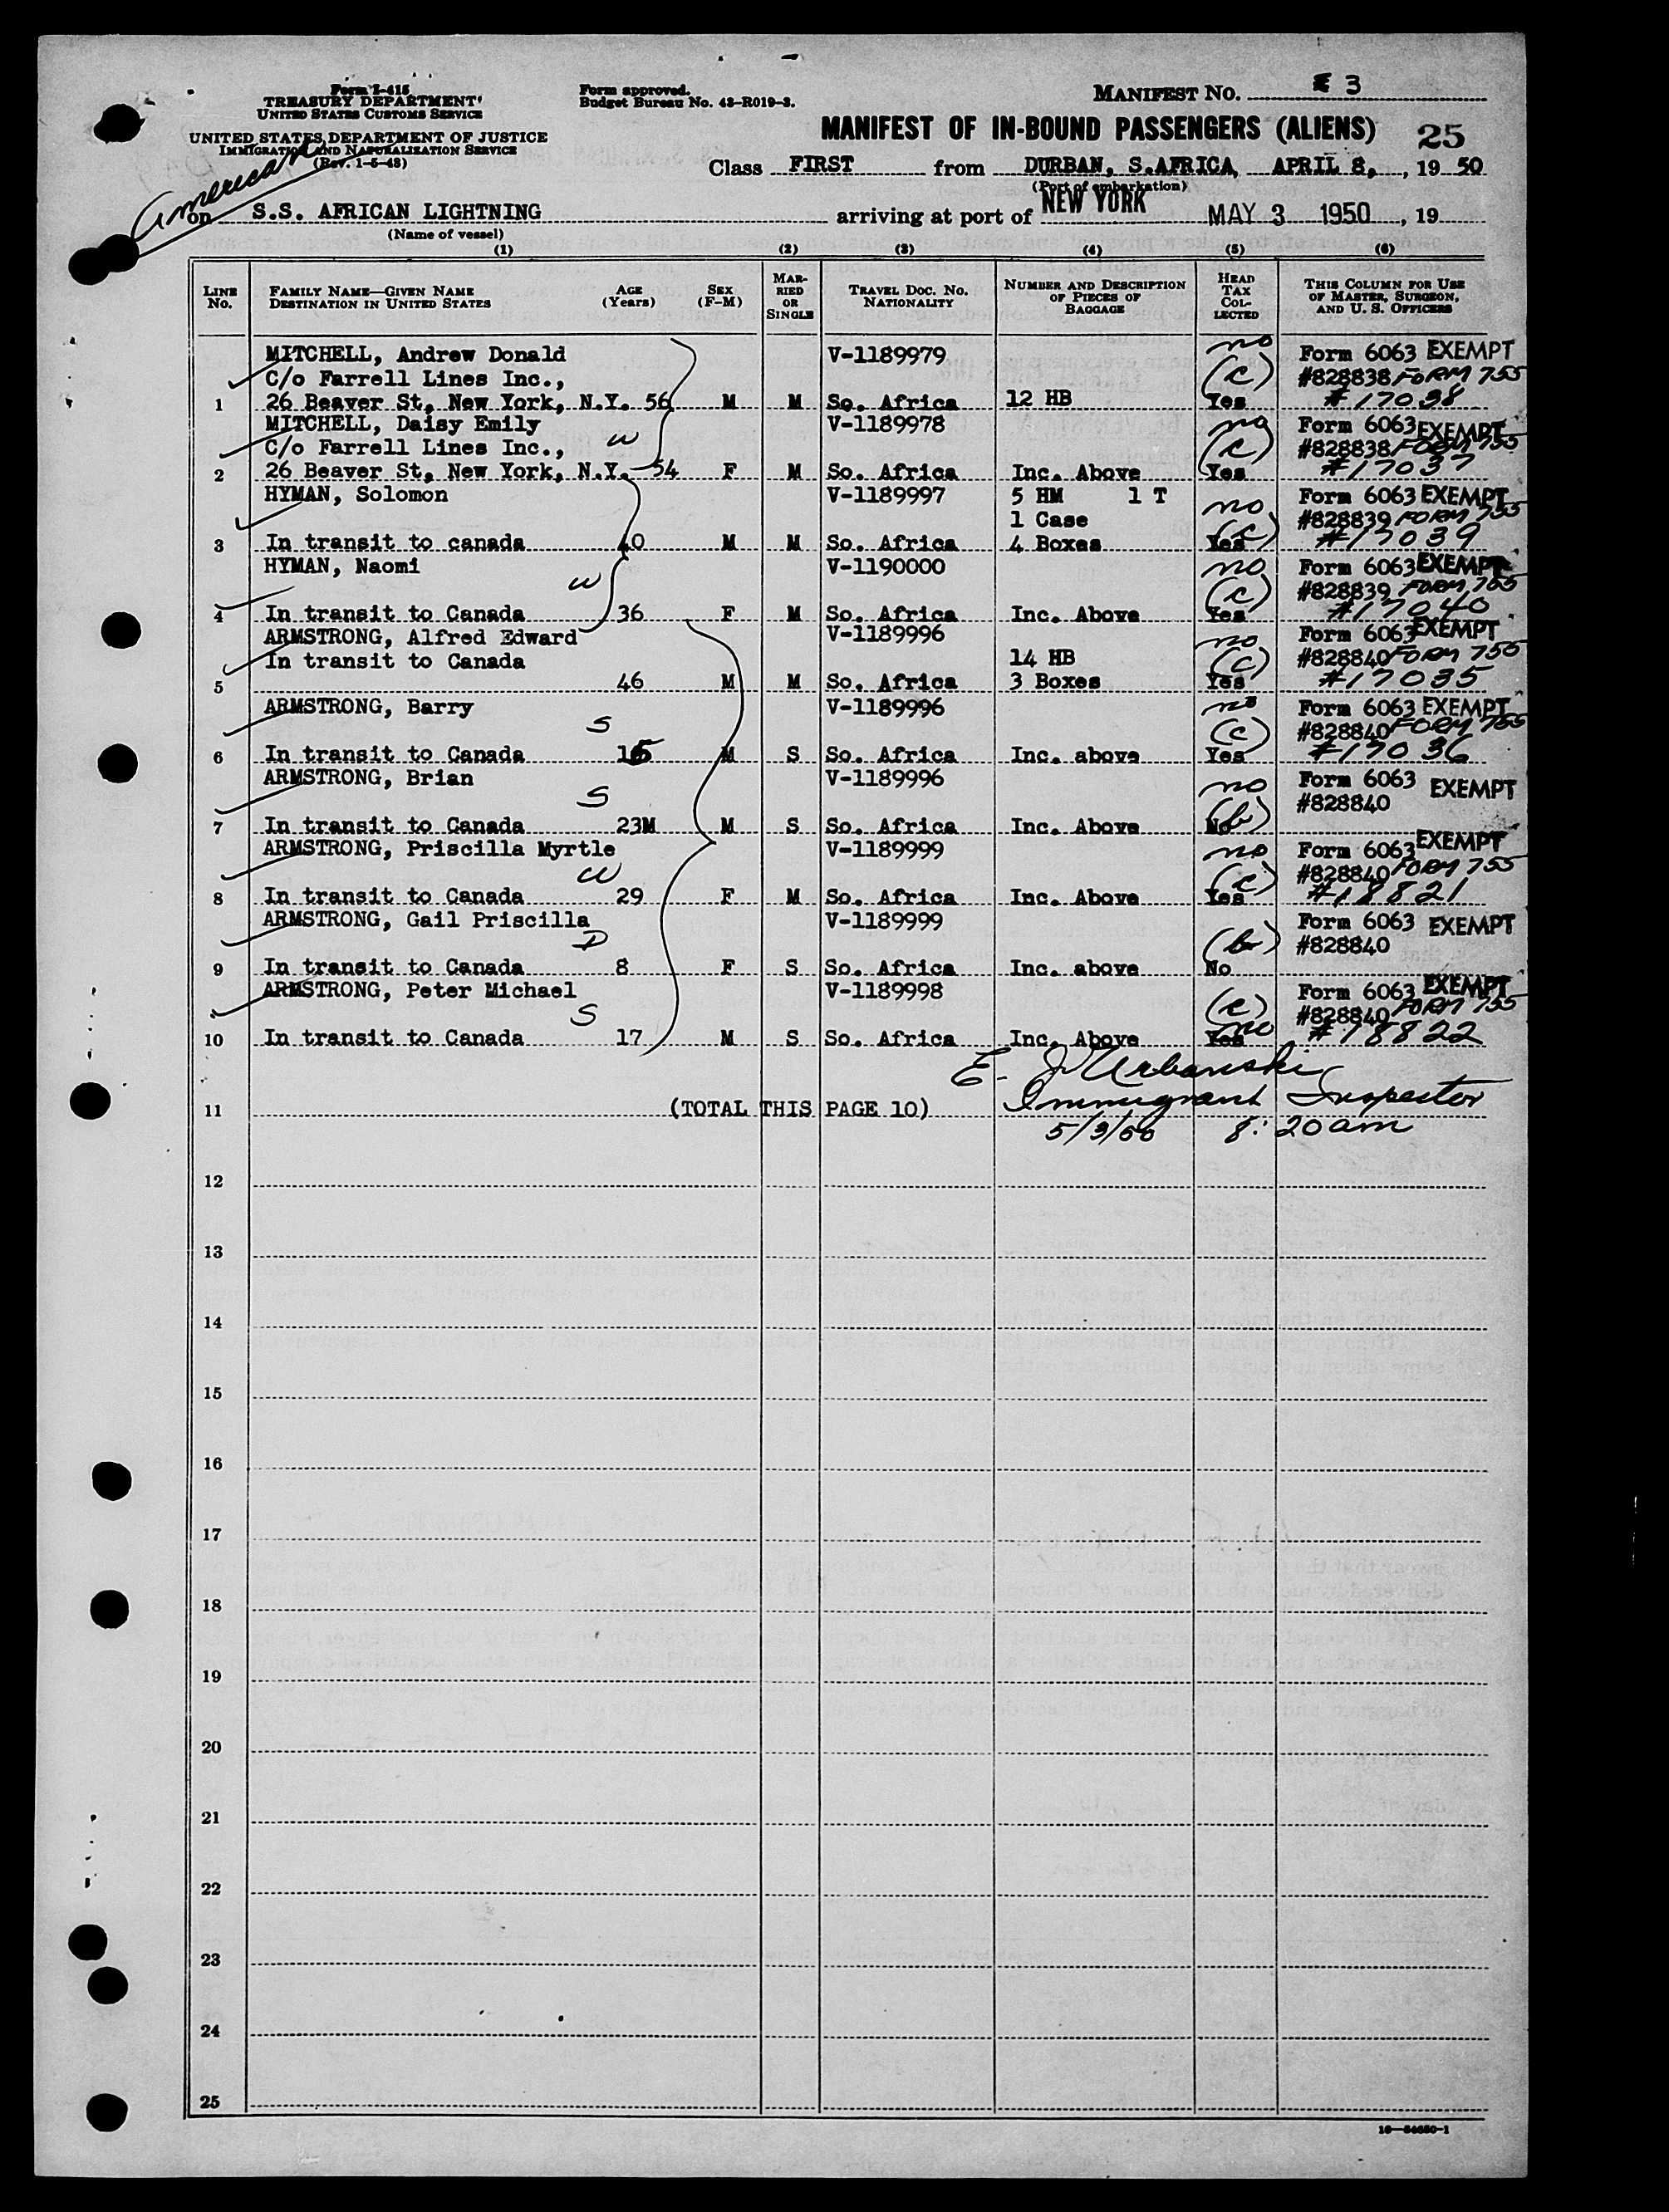 Form I-415
TREASURY DEPARTMENT
UNITED STATES CUSTOMS SERVICE
UNITED STATES DEPARTMENT OF JUSTICE
IMMIGRATION AND NATURALIZATION SERVICE
(Rev. 1-5-48)
Form approved.
Budget Bureau No. 43-R019-3.
MANIFEST NO. 3
MANIFEST OF IN-BOUND PASSENGERS (ALIENS) 25
Class FIRST from DURBAN, S.AFRICA, APRIL 8, , 19 50
(Port of embarkation)
American
on S.S. AFRICAN LIGHTNING arriving at port of NEW YORK MAY 3 1950 , 19
(Name of vessel)
(1) (2) (3) (4) (5) (6)
LINE No. FAMILY NAME—GIVEN NAME DESTINATION IN UNITED STATES AGE (Years) SEX (F-M) MARRIED OR SINGLE TRAVEL DOC. NO. NATIONALITY NUMBER AND DESCRIPTION OF PIECES OF BAGGAGE HEAD TAX COLLECTED THIS COLUMN FOR USE OF MASTER, SURGEON, AND U. S. OFFICERS
MITCHELL, Andrew Donald V-1189979 no Form 6063 EXEMPT
C/o Farrell Lines Inc., (c) #828838 FORM 755
1 26 Beaver St, New York, N.Y. 56 M M So. Africa 12 HB Yes #17038
MITCHELL, Daisy Emily V-1189978 no Form 6063 EXEMPT
C/o Farrell Lines Inc., W (c) #828838 FORM 755
2 26 Beaver St, New York, N.Y. 54 F M So. Africa Inc. Above Yes #17037
HYMAN, Solomon V-1189997 5 HM 1 T no Form 6063 EXEMPT
1 Case (c) #828839 FORM 755
3 In transit to canada 40 M M So. Africa 4 Boxes Yes #17039
HYMAN, Naomi V-1190000 no Form 6063 EXEMPT
W (c) #828839 FORM 755
4 In transit to Canada 36 F M So. Africa Inc. Above Yes #17040
ARMSTRONG, Alfred Edward V-1189996 no Form 6063 EXEMPT
In transit to Canada 14 HB (c) #828840 FORM 755
5 46 M M So. Africa 3 Boxes Yes #17035
ARMSTRONG, Barry V-1189996 no Form 6063 EXEMPT
S (c) #828840 FORM 755
6 In transit to Canada 15 M S So. Africa Inc. above Yes #17036
ARMSTRONG, Brian V-1189996 no Form 6063 EXEMPT
S (b) #828840
7 In transit to Canada 23M M S So. Africa Inc. Above No
ARMSTRONG, Priscilla Myrtle V-1189999 no Form 6063 EXEMPT
W (c) #828840 FORM 755
8 In transit to Canada 29 F M So. Africa Inc. Above Yes #18821
ARMSTRONG, Gail Priscilla V-1189999 Form 6063 EXEMPT
D (b) #828840
9 In transit to Canada 8 F S So. Africa Inc. above No
ARMSTRONG, Peter Michael V-1189998 Form 6063 EXEMPT
S (c) #828840 FORM 755
10 In transit to Canada 17 M S So. Africa Inc. Above Yes no #18822
E. J. Urbanski
11 (TOTAL THIS PAGE 10) Immigrant Inspector
5/3/50 8:20am
12
13
14
15
16
17
18
19
20
21
22
23
24
25